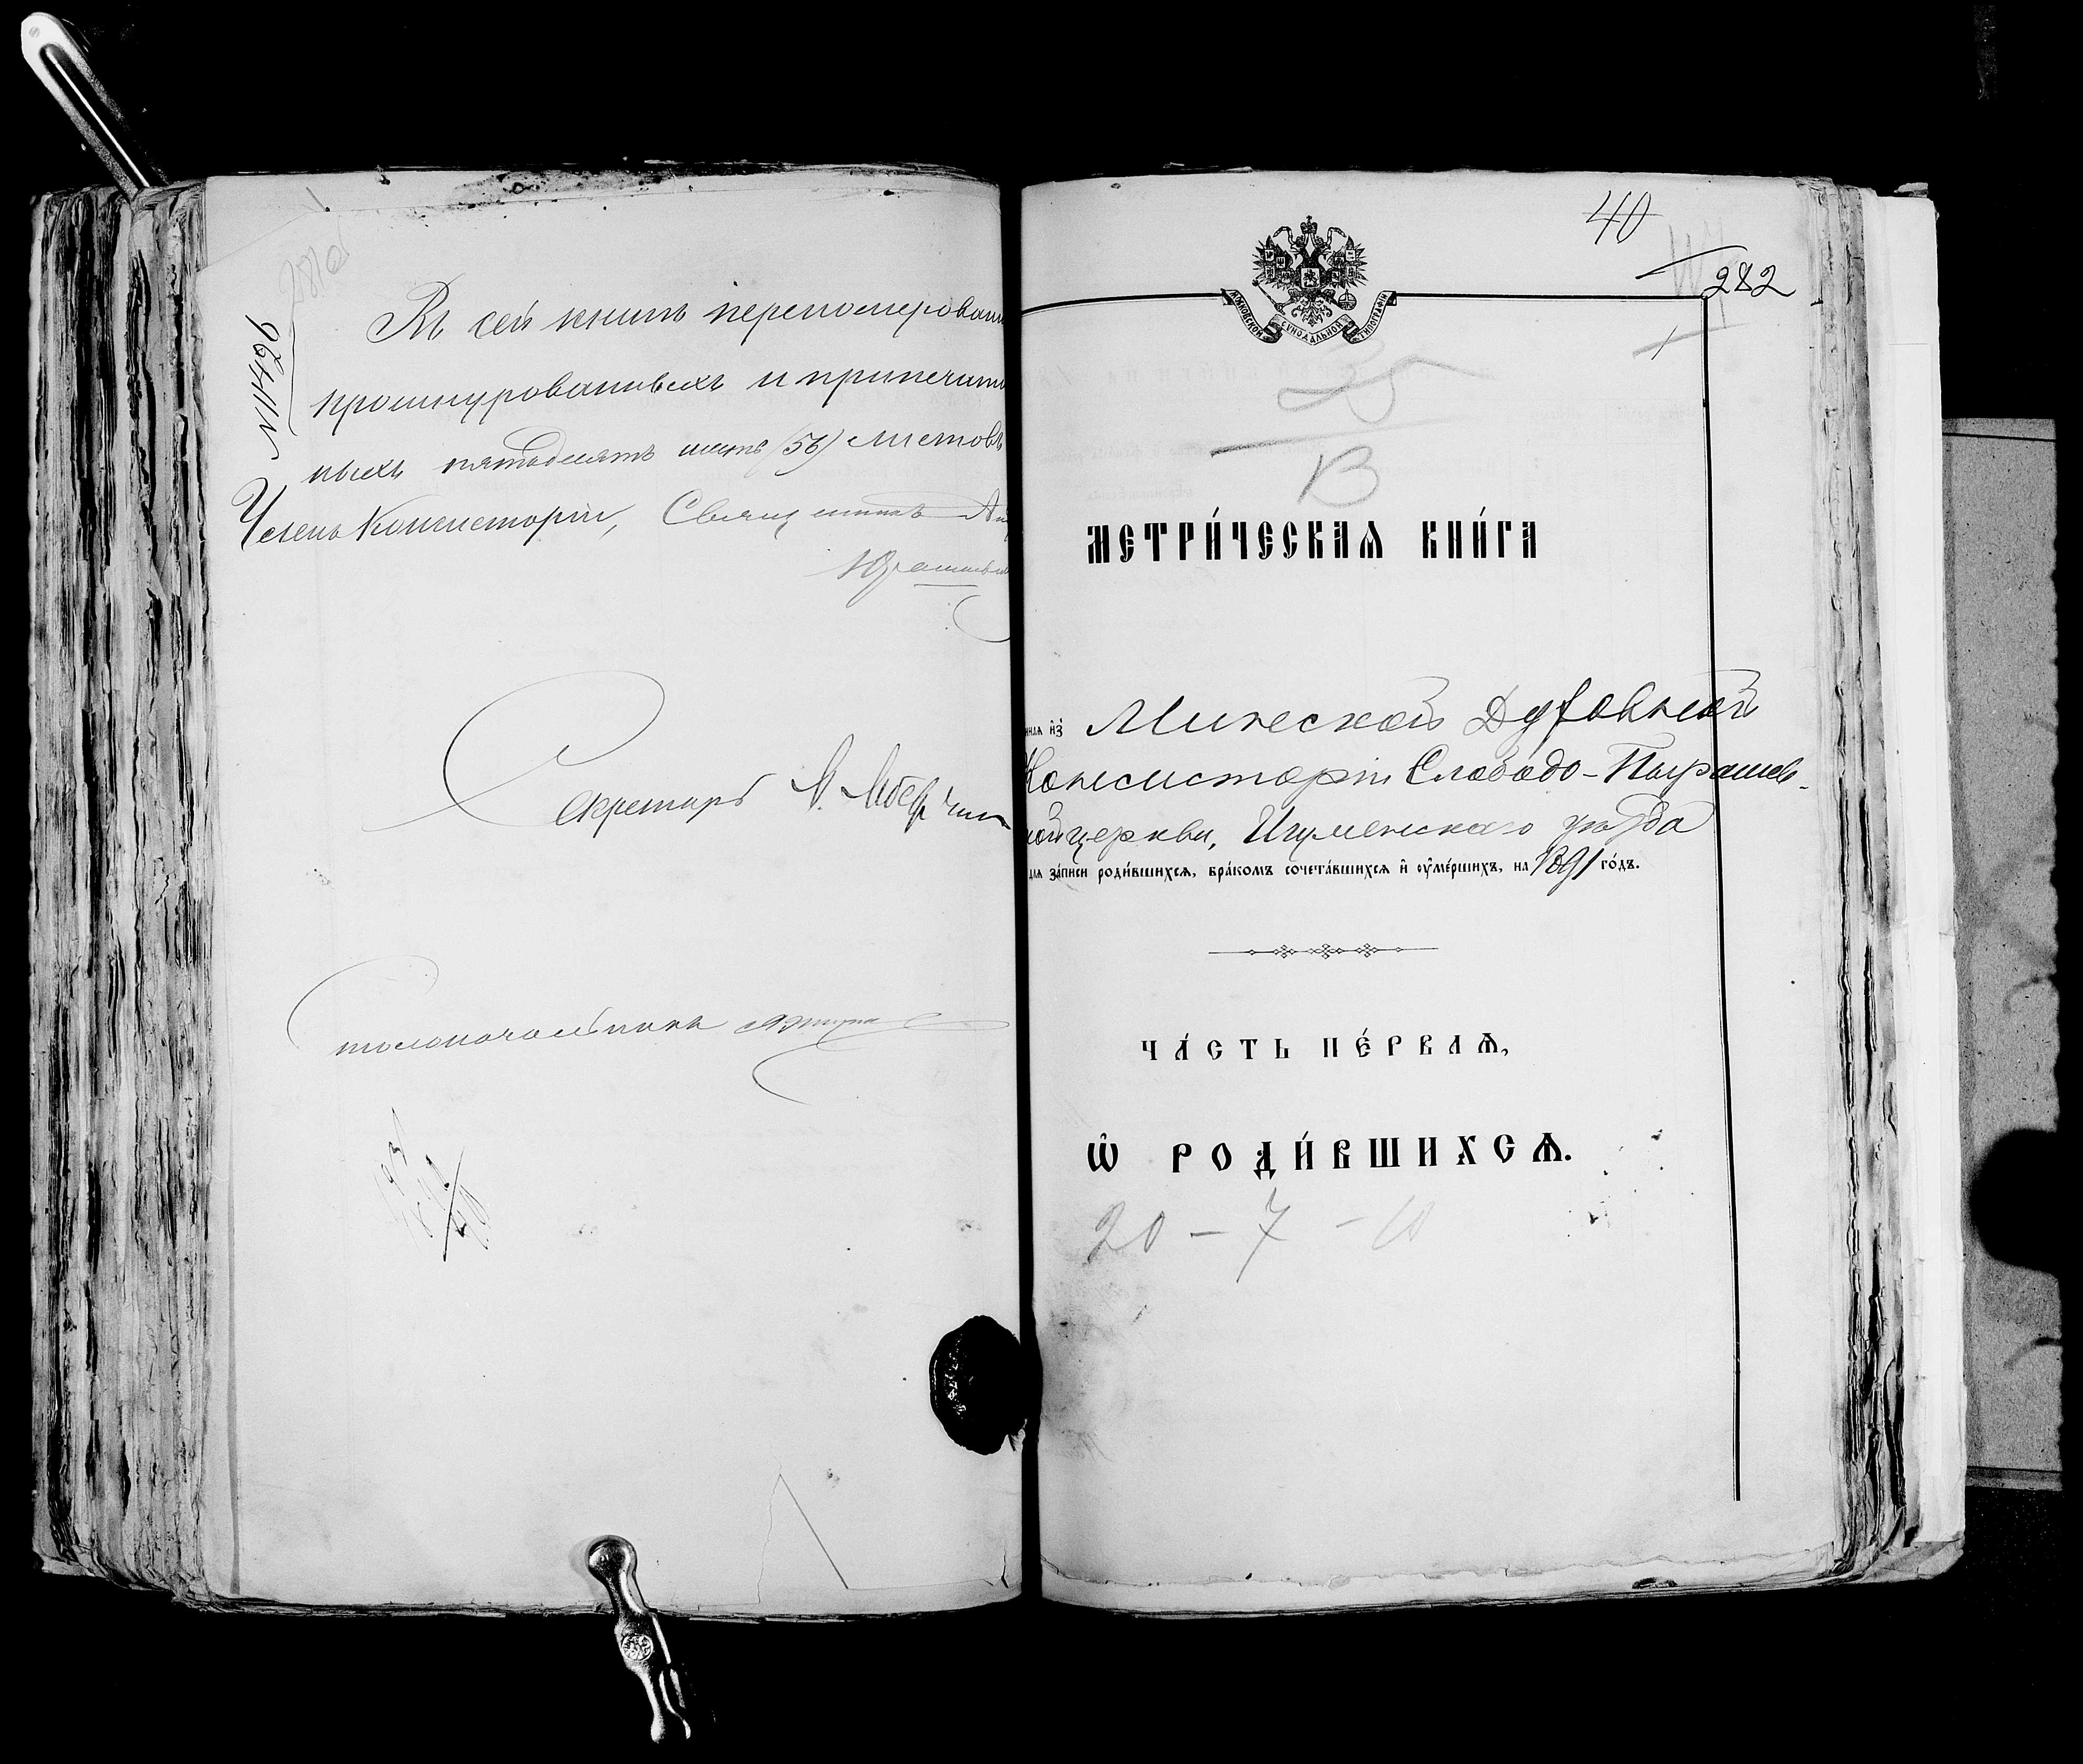 Въ сей книгѣ перенумерован
прошнурованныхъ и припечатан
ныхъ пятьдесятъ шесть (56) листовъ
Членъ Консисторіи, Священникъ
Секретарь
Столоначальникъ
40
282
МОСКОВСКОЙ СѴНОДАЛЬНОЙ ТИПОГРАФІИ
В
МЕТРИ́ЧЕСКАѦ КНИ́ГА
ннаѧ и҆з̾ Минской Духовной
Консисторіи Слободо-Пырашев-
кой церкви, Игуменскаго уѣзда
для за́писи роди́вшихсѧ, бра́комъ сочета́вшихсѧ и҆ ᲂу҆ме́ршихъ, на 1891 го́дъ.
ЧА́СТЬ ПЕ́РВАѦ,
Ѡ҆ РОДИ́ВШИХСѦ.
20 - 7 - 10